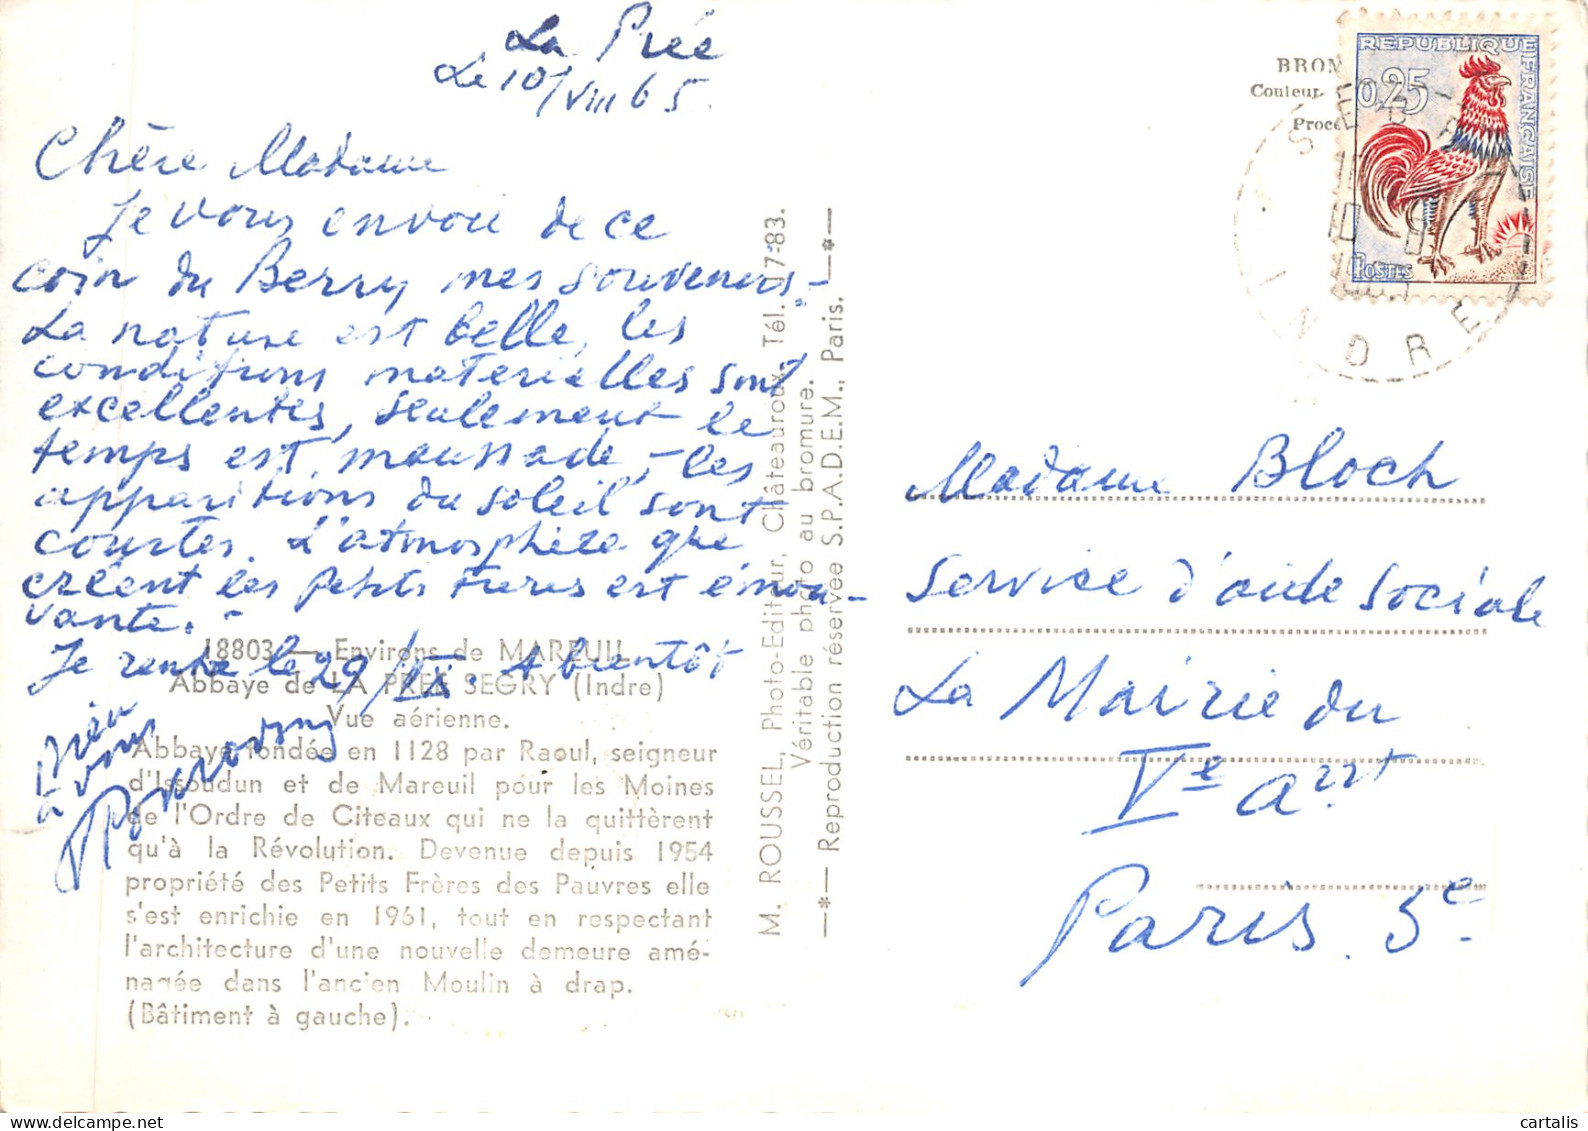 La Prée
Le 10/VIII 65.
Chère Madame
Je vous envoie de ce
coin du Berry mes souvenirs.-
La nature est belle, les
conditions materielles sont
excellentes, seulement le
temps est maussade, - les
apparitions du soleil sont
courtes. L'atmosphère que
créent les Petits Frères est émou-
vante.-
Je rentre le 29/IX. A bientôt
Bien
à vous
18803 — Environs de MAREUIL
Abbaye de LA PRÉE SEGRY (Indre)
Vue aérienne.
Abbaye fondée en 1128 par Raoul, seigneur
d'Issoudun et de Mareuil pour les Moines
de l'Ordre de Citeaux qui ne la quittèrent
qu'à la Révolution. Devenue depuis 1954
propriété des Petits Frères des Pauvres elle
s'est enrichie en 1961, tout en respectant
l'architecture d'une nouvelle demeure amé-
nagée dans l'ancien Moulin à drap.
(Bâtiment à gauche).
M. ROUSSEL, Photo-Editeur, Châteauroux, Tél. 17-83.
Véritable photo au bromure.
—*— Reproduction réservée S.P.A.D.E.M., Paris. —*—
BROM
Couleur
Procé
REPUBLIQUE FRANÇAISE
0,25
POSTES
INDRE
Madame Bloch
Service d'aide sociale
La Mairie du
Ve arrt
Paris. 5e
cartalis
www.delcampe.net